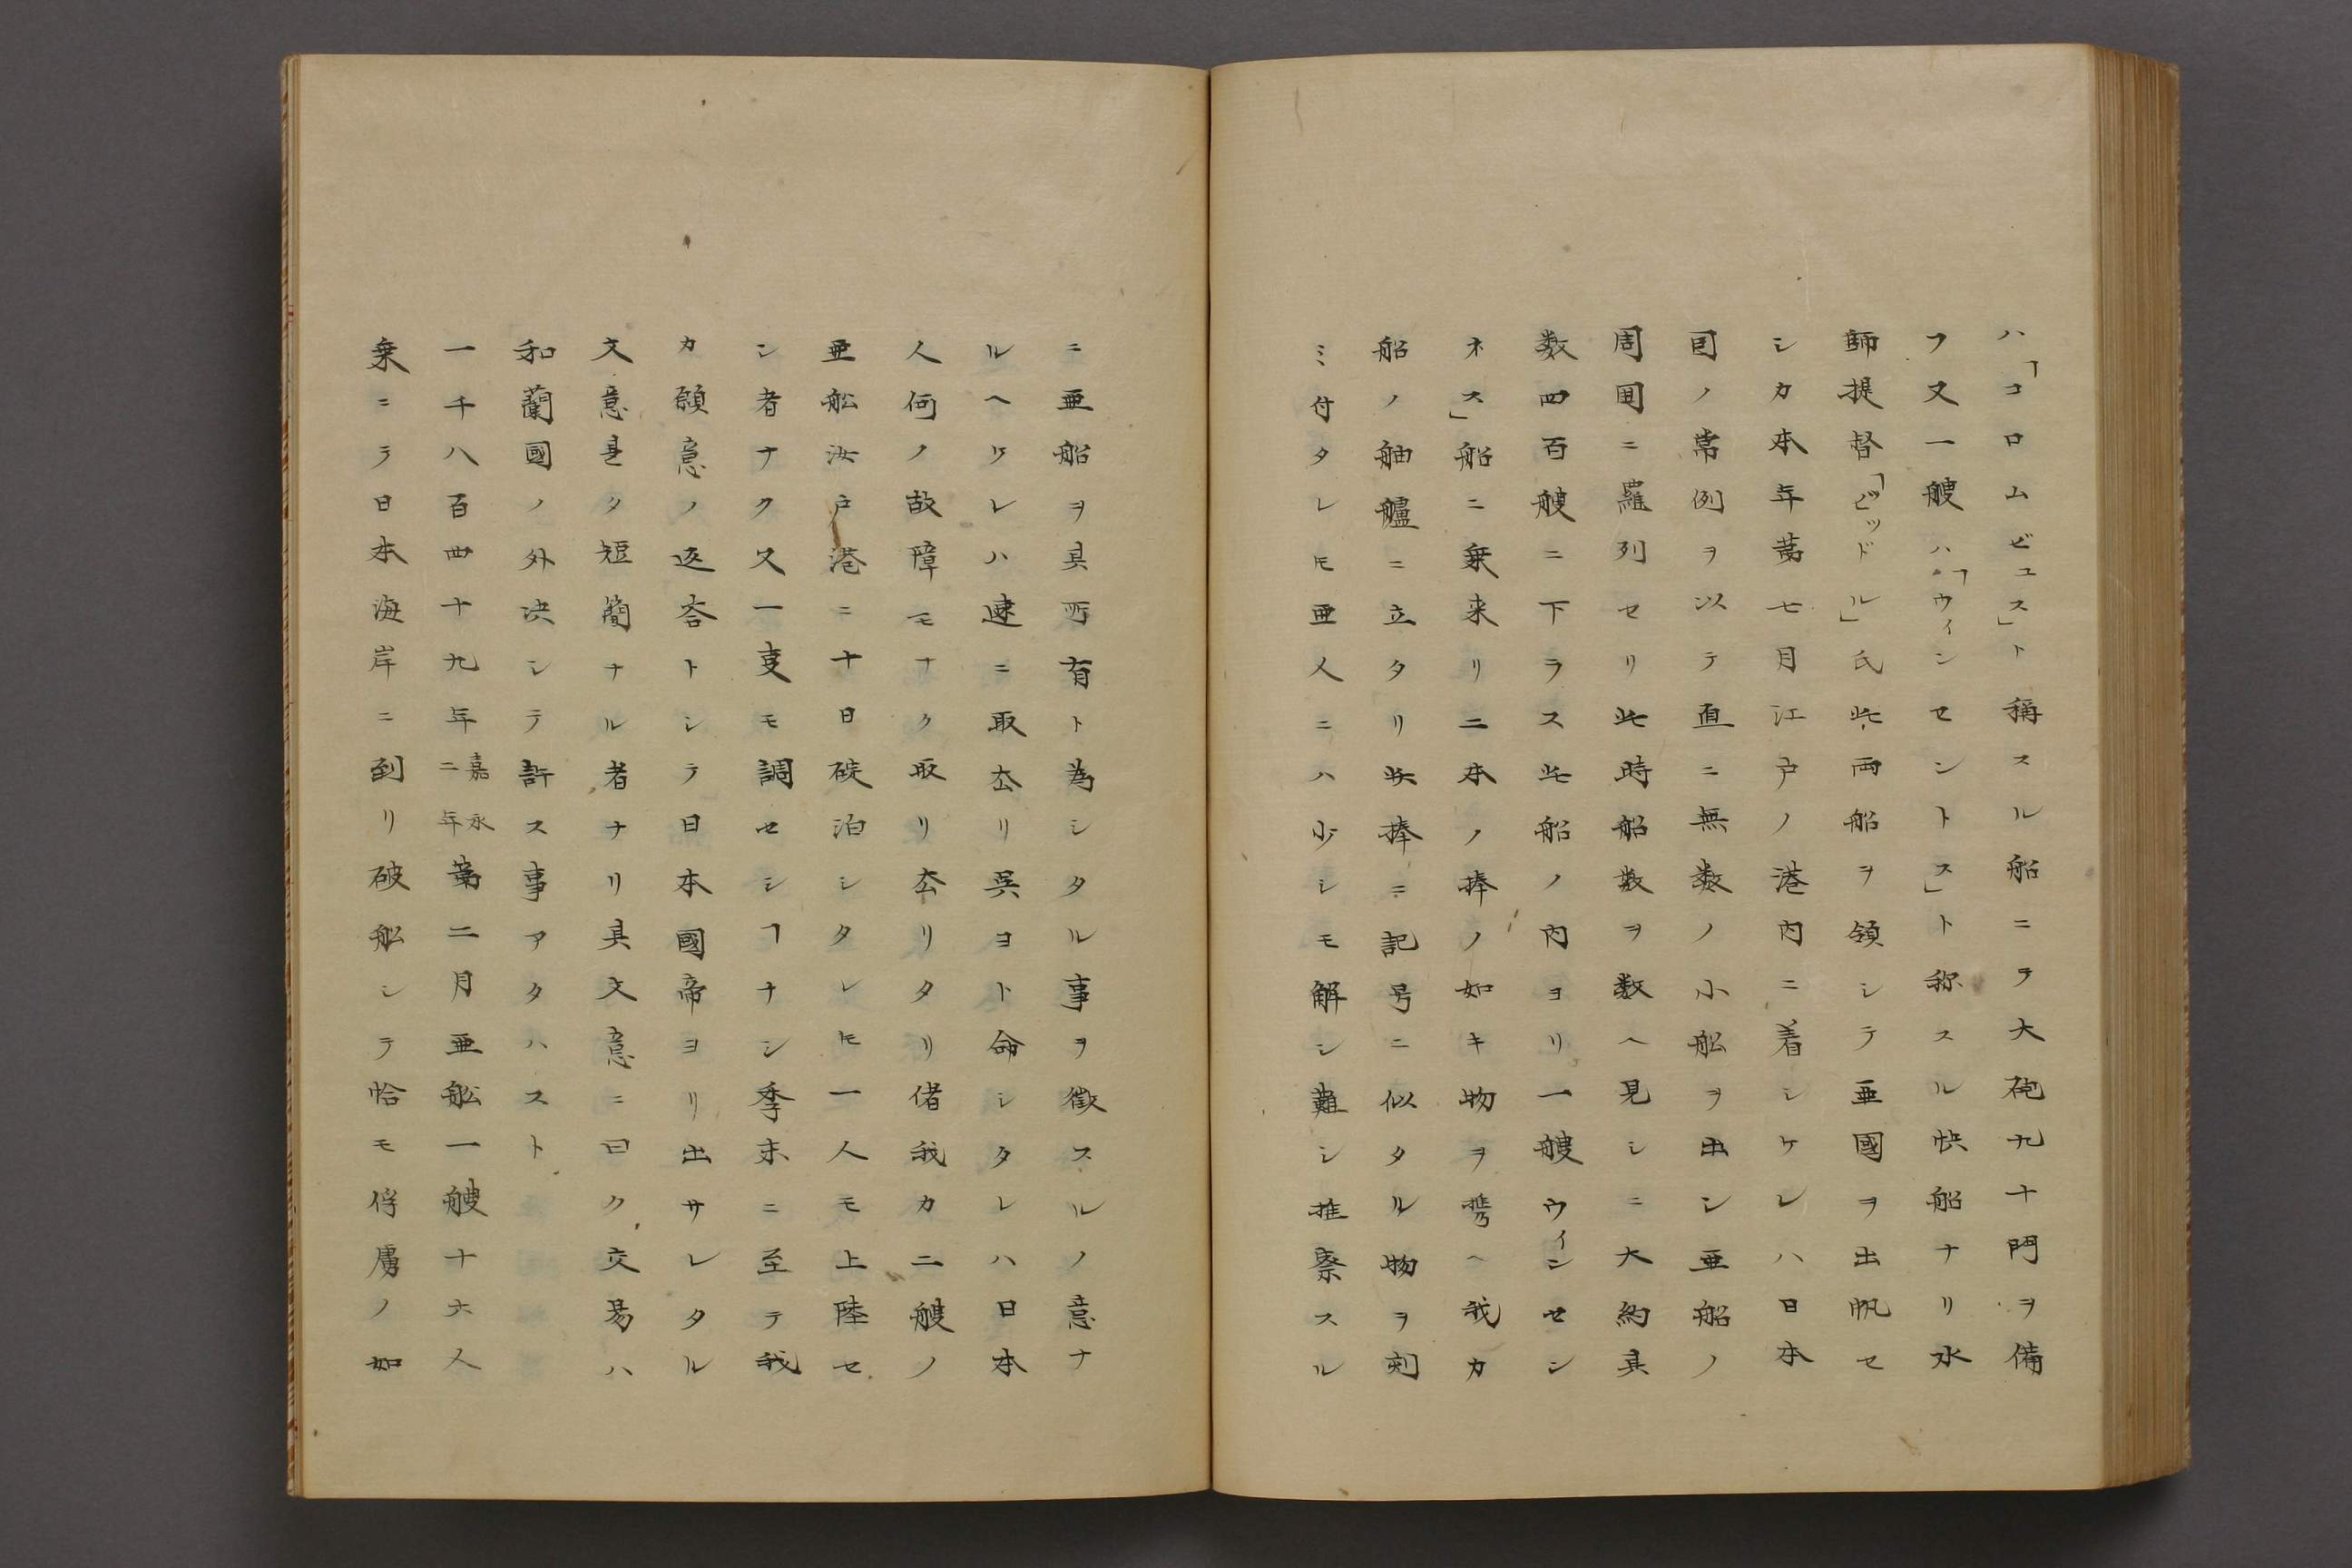 ハ「コロムビュス」ト稱スル船ニテ大砲九十門ヲ備
フ又一艘ハ「ウィンセントス」ト称スル快船ナリ水
師提督「ビッドル」氏此両船ヲ領シテ亜國ヲ出帆セ
シカ本年第七月江戸ノ港内ニ着シケレハ日本
国ノ常例ヲ以テ直ニ無数ノ小舩ヲ出シ亜船ノ
周囲ニ羅列セリ此時船数ヲ数ヘ見シニ大約其
数四百艘ニ下ラス此船ノ内ヨリ一艘ウィンセン
ネス」船ニ乗来リ二本ノ捧ノ如キ物ヲ携ヘ我カ
船ノ舳艫ニ立タリ此捧ニ記号ニ似タル物ヲ刻
ミ付タレ𪜈亜人ニハ少シモ解シ難シ推察スル
ニ亜船ヲ其所有ト為シタル事ヲ徴スルノ意ナ
ルヘケレハ速ニ取厺リ呉ヨト命シタレハ日本
人何ノ故障モナク取リ厺リタリ偖我カ二艘ノ
亜舩汝戸港ニ十日碇泊シタレ𪜈一人モ上陸セ
シ者ナク又一叓モ調セシヿナシ季末ニ至テ我
カ願意ノ返答トシテ日本國帝ヨリ出サレタル
文意甚タ短簡ナル者ナリ其文意ニ曰ク交易ハ
和蘭國ノ外决シテ許ス事アタハスト
一千八百四十九年嘉永二年第二月亜舩一艘十六人
乗ニテ日本海岸ニ到リ破舩シテ恰モ俘虜ノ如